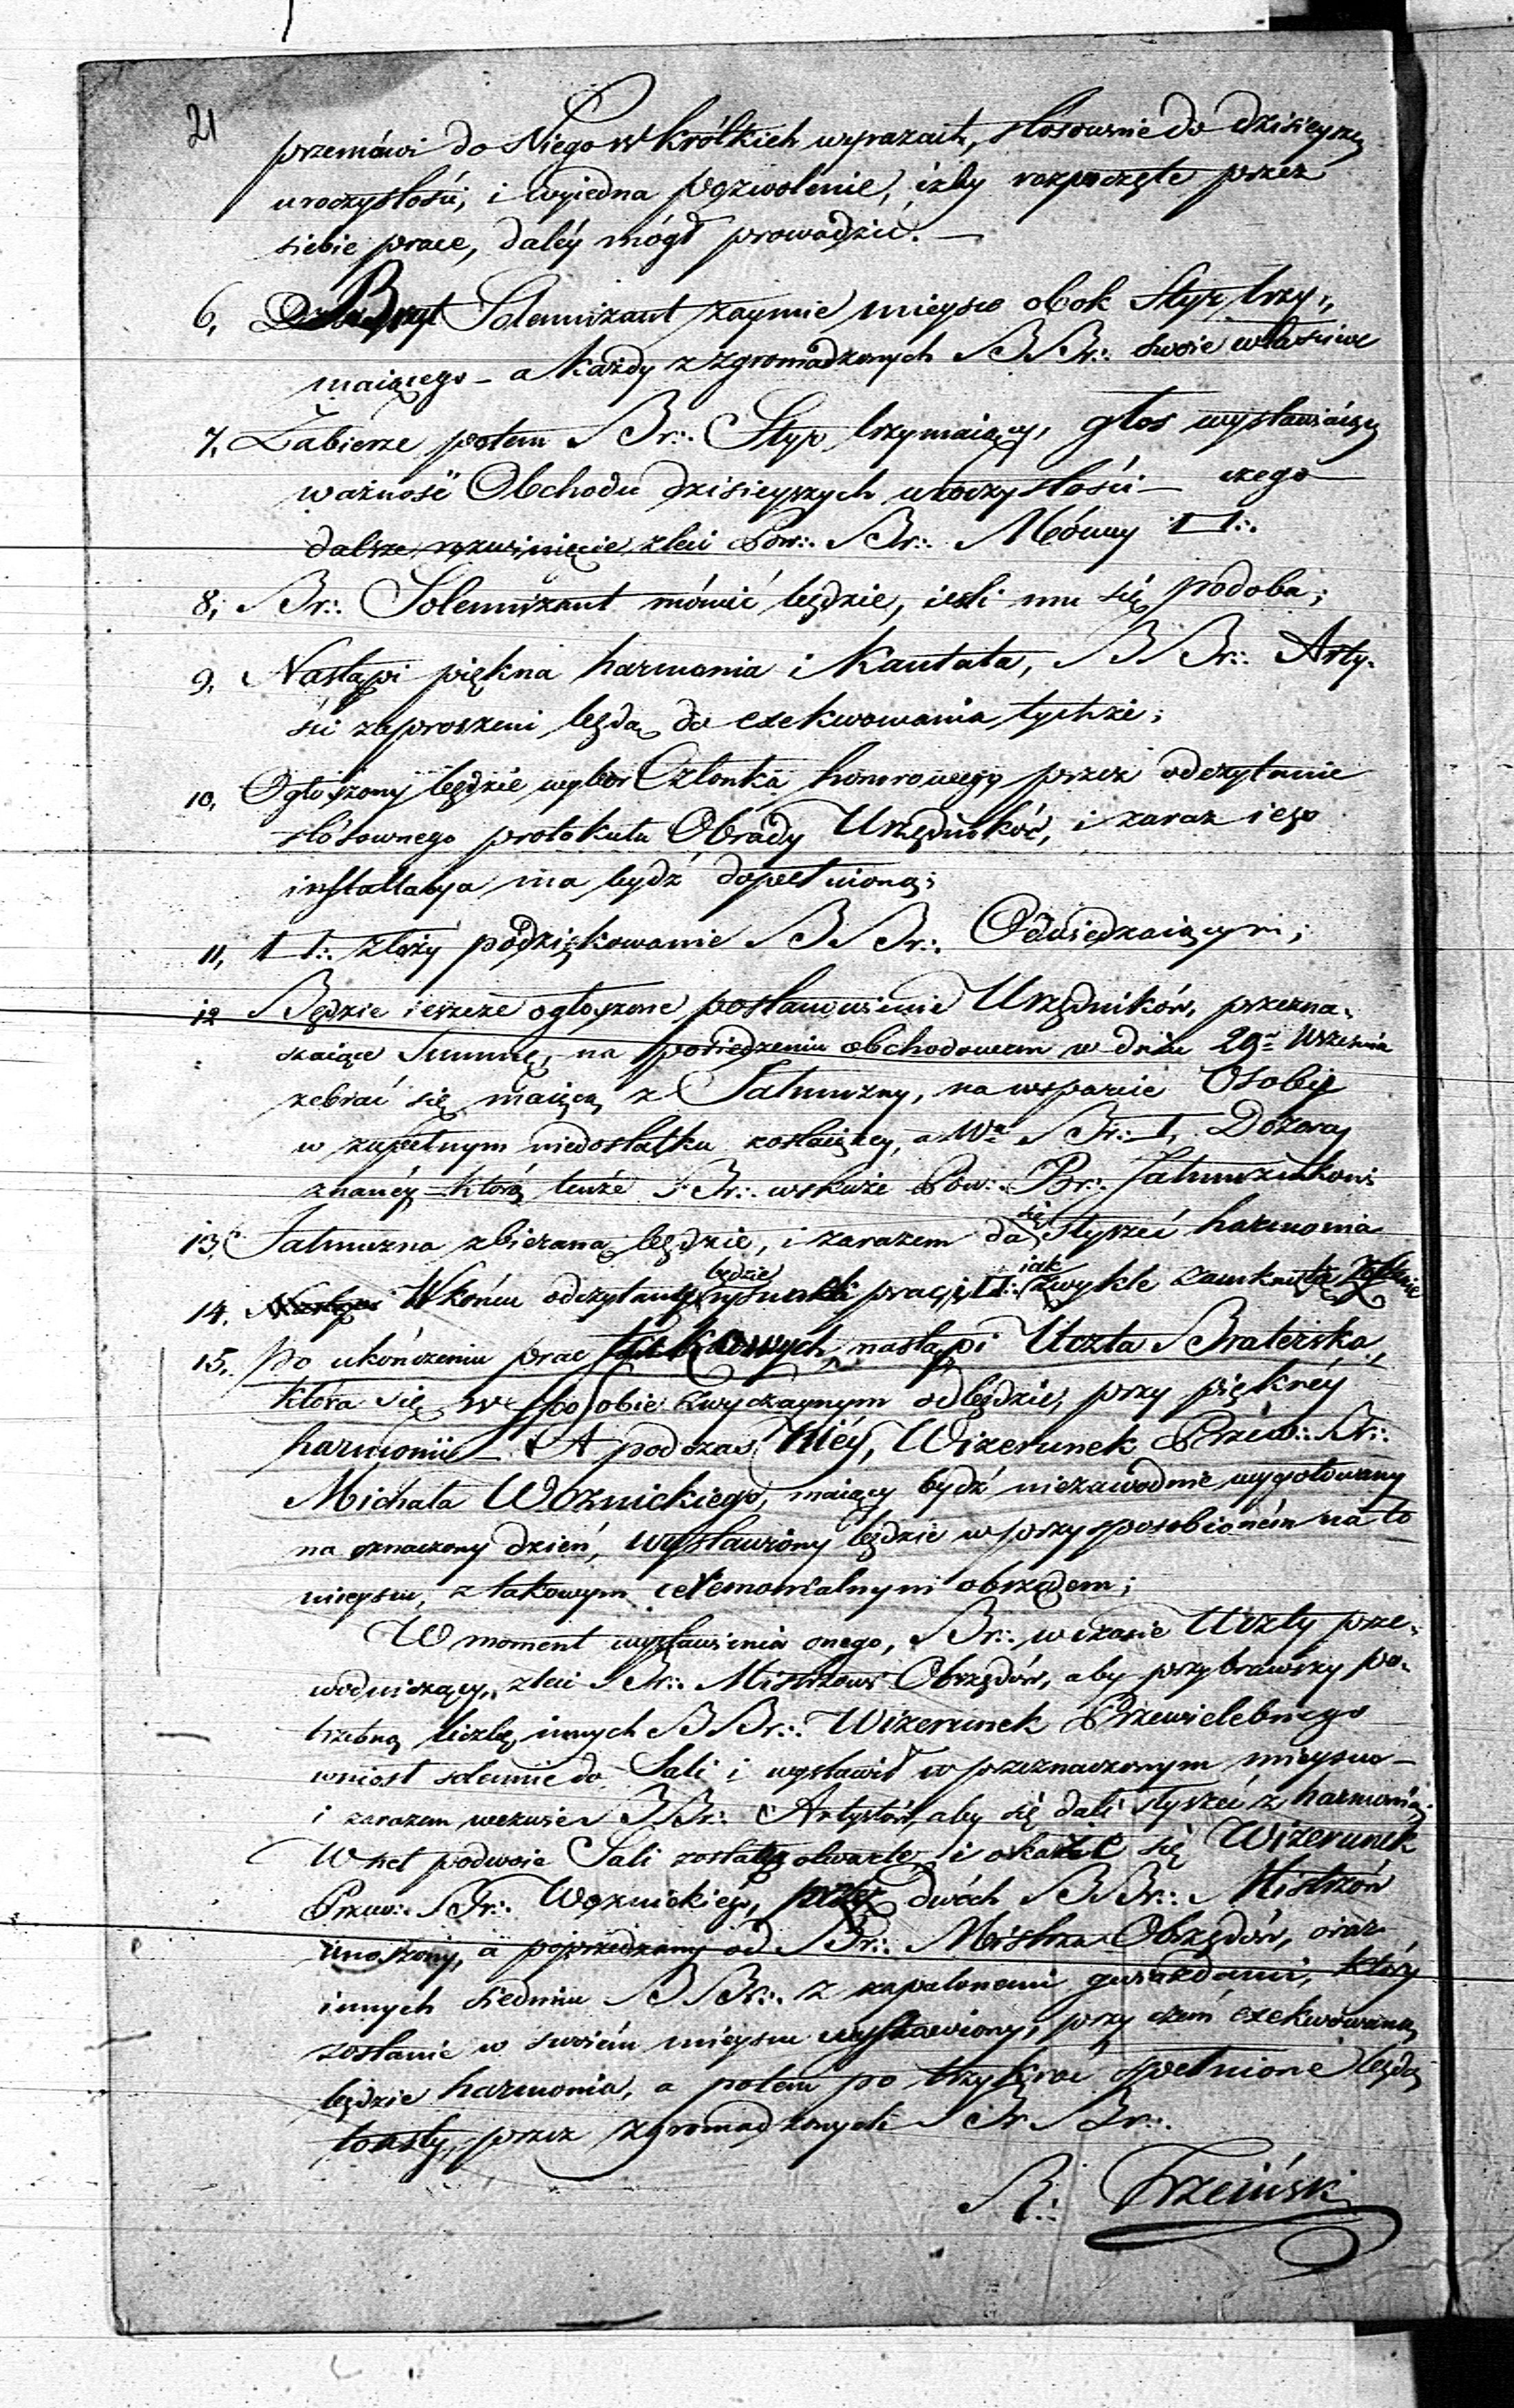 21
przemówi do Niego w krótkich wyrazach, stósownie do dzisieyszey
uroczystości, i wyiedna pozwolenie, iżby rozpoczęte przez
siebie prace, daléy mógł prowadzić. —
6, Br Solennizant zaymie mieysce obok Styr trzy„
maiącego — a każdy z zgromadzonych BBr∴ swoie właściwe
7, Zabierze potem Br∴ Styr trzymaiący, głos wystawiaiący
ważność Obchodu dzisieyszych uroczystości — czego
dalsze rozwinięcie zleci Pow∴ Br∴ Mówcy □∴
8, Br∴ Solennizant mówić będzie, ieśli mu się podoba;
9, Nastąpi piękna harmonia i Kantata, BBr∴ Arty„
ści zaproszeni będą do exekwowania tychże;
10, Ogłoszony będzie wybór Członka honorowego przez odczytanie
stósownego protokułu Obrady Urzędników, i zaraz iego
installacya ma bydź dopełnioną;
11, □∴ złoży podziękowanie BBr∴ Odwiedzaiącym;
12 Będzie ieszcze ogłoszone postanowienie Urzędników, przezna„
czaiące Summę, na posiedzeniu obchodowem w dniu 29º Września
zebrać się maiącą z Jałmużny, na wsparcie Osobie
w zupełnym niedostatku zostaiącey, a Wu Br∴ I, Dozorcy
znanéy — którą tenże Br∴ wskaże Pow∴ Br∴ Jałmużnikowi
13, Jałmużna zbierana będzie, i zarazem da się słyszeć harmonia
14, W końcu odczytany będzie rysunek pracy i □∴ iak zwykle zamkniętą zostanie
15, Po ukończeniu prac nastąpi Uczta Braterska,
która się w sposobie zwyczaynym odbędzie, przy piękney
harmonii — A podczas niéy, Wizerunek Przew∴ Br∴
Michała Woźnickiego, maiący bydź niezawodnie wygotowany
na oznaczony dzień, wystawiony będzie w przysposobioném na to
mieyscu, z takowym ceremonialnym obrządem;
W moment wystawienia onego, Br∴ w czasie Uczty prze„
wodniczący, zleci Br∴ Mistrzowi Obrzędów, aby przybrawszy po„
trzebną liczbę innych BBr∴ Wizerunek Przewielebnego
wniósł solennie do Sali i wystawił w przeznaczonym mieyscu —
i zarazem wezwie BBr∴ Artystów, aby się dali słyszeć z harmonią;
Wnet podwoie Sali zostaną otwarte i okaże się Wizerunek
Przew∴ Br∴ Woźnickiego, przez dwóch BBr∴ Mistrzów
unoszony, a poprzedzany od Br∴ Mistrza Obrzędów, oraz
innych siedmiu BBr∴ z zapalonemi gwiazdami, który
zostanie w swoiém mieyscu wystawiony, przy czém exekwowana
będzie harmonia, a potem po trzykroć spełnione będą
toasty, przez zgromadzonych BrBr∴
Br∴ Trzciński